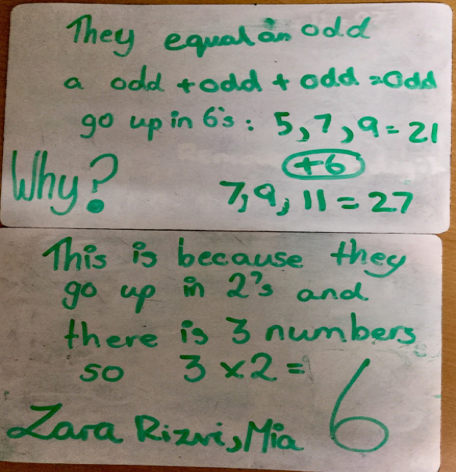 They equal an odd
a odd + odd + odd = odd
go up in 6's : 5, 7, 9 = 21
+6
Why? 7, 9, 11 = 27
This is because they
go up in 2's and
there is 3 numbers
so 3 x 2 = 6
Zara Rizvi, Mia